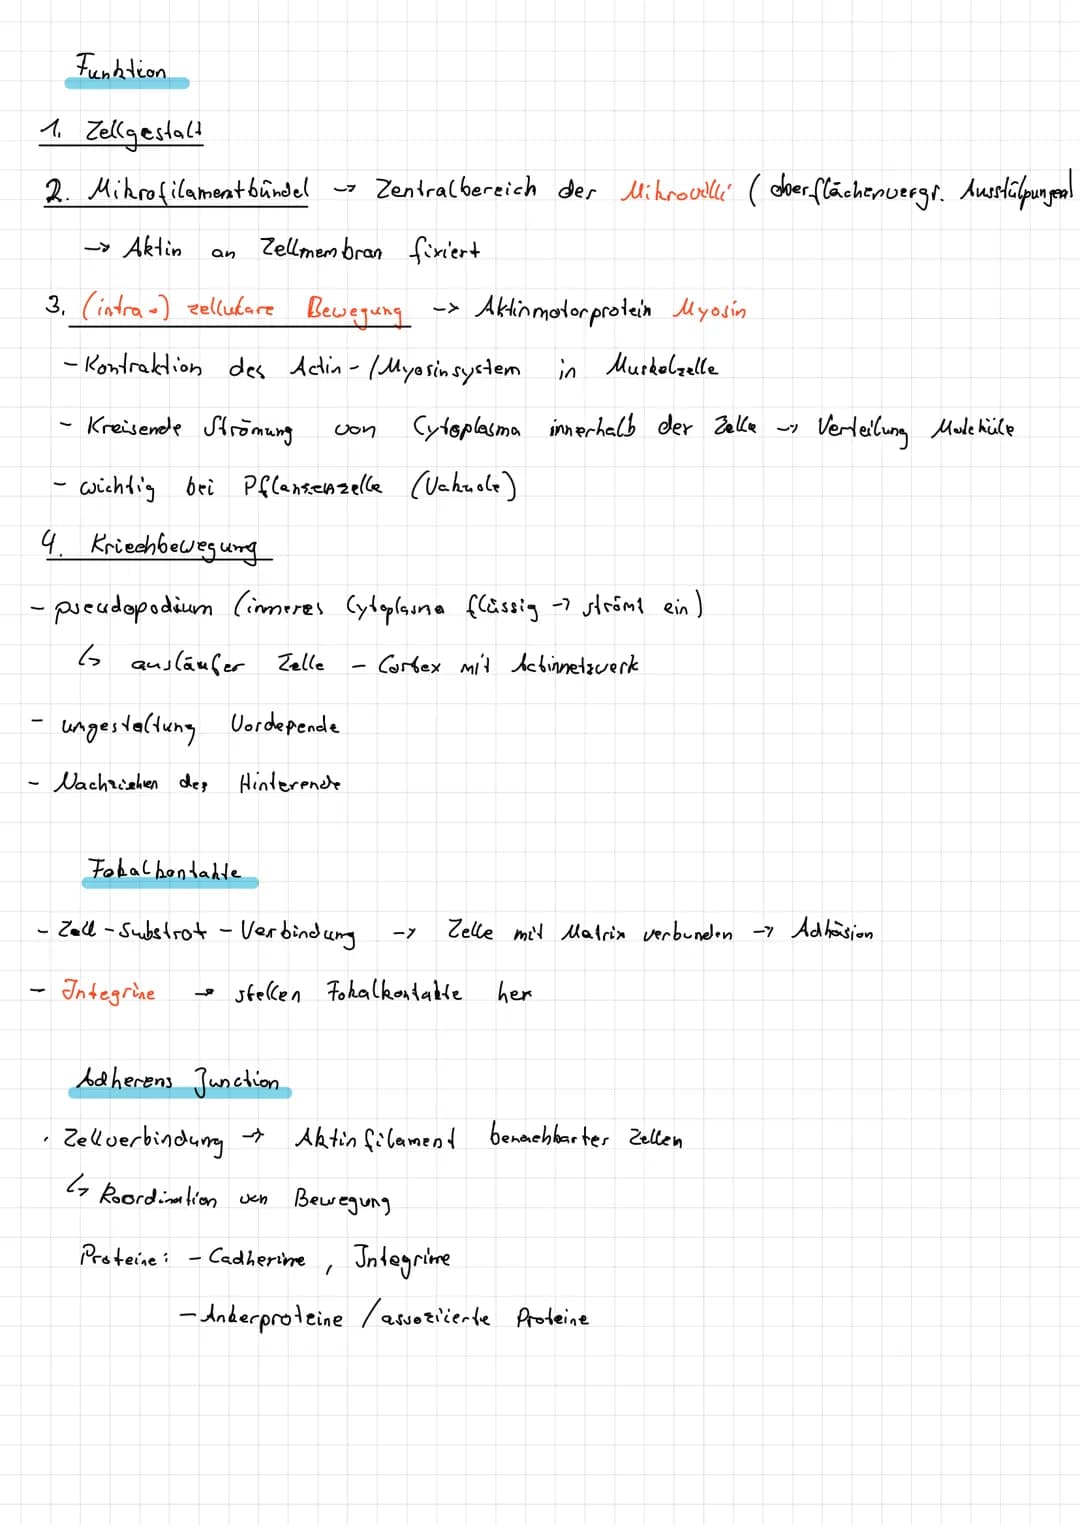 Funktion
1. Zellgestalt
2. Mikrofilamentbündel → Zentralbereich der Mikrovilli (oberflächenvergr. Ausstülpungen)
→ Aktin an Zellmembran fixiert
3. (intra-) zelluläre Bewegung -> Aktinmotorprotein Myosin
- Kontraktion des Actin-/Myosinsystem in Muskelzelle
- Kreisende Strömung von Cytoplasma innerhalb der Zelle → Verteilung Moleküle
- wichtig bei Pflanzenzelle (Vakuole)
4. Kriechbewegung
- pseudopodium (inneres Cytoplasma flüssig → strömt ein)
↳ ausläufer Zelle - Cortex mit Actinnetzwerk
- umgestaltung Vordepende
- Nachziehen des Hinterende
Fokalkontakte
- Zell-Substrat-Verbindung -> Zelle mit Matrix verbunden → Adhäsion
- Integrine → stellen Fokalkontakte her
Adherens Junction
· Zellverbindung → Aktinfilament benachbarter Zellen
↳ Koordination von Bewegung
Proteine: - Cadherine, Integrine
- Ankerproteine / assoziierte Proteine